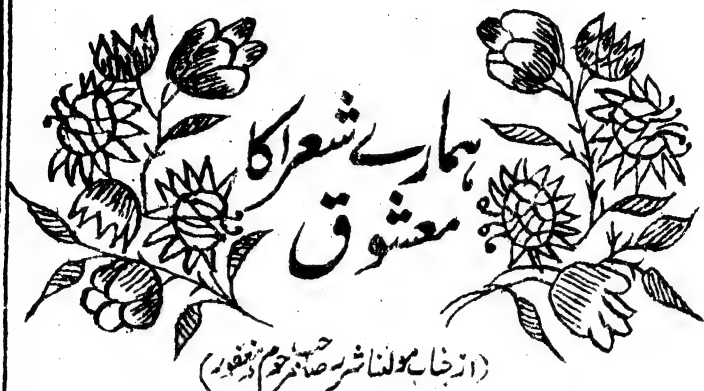 ہمارے شعرا کا
معشوق
(از جناب مولنا شرر صاحب مرحوم و مغفور)